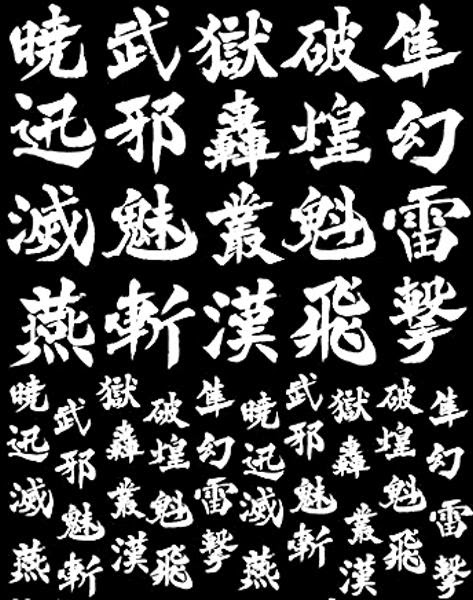 暁武獄破隼
迅邪轟煌幻
滅魅叢魁雷
燕斬漢飛撃
暁武獄破隼暁武獄破隼
迅邪轟煌幻迅邪轟煌幻
滅魅叢魁雷滅魅叢魁雷
燕斬漢飛撃燕斬漢飛撃